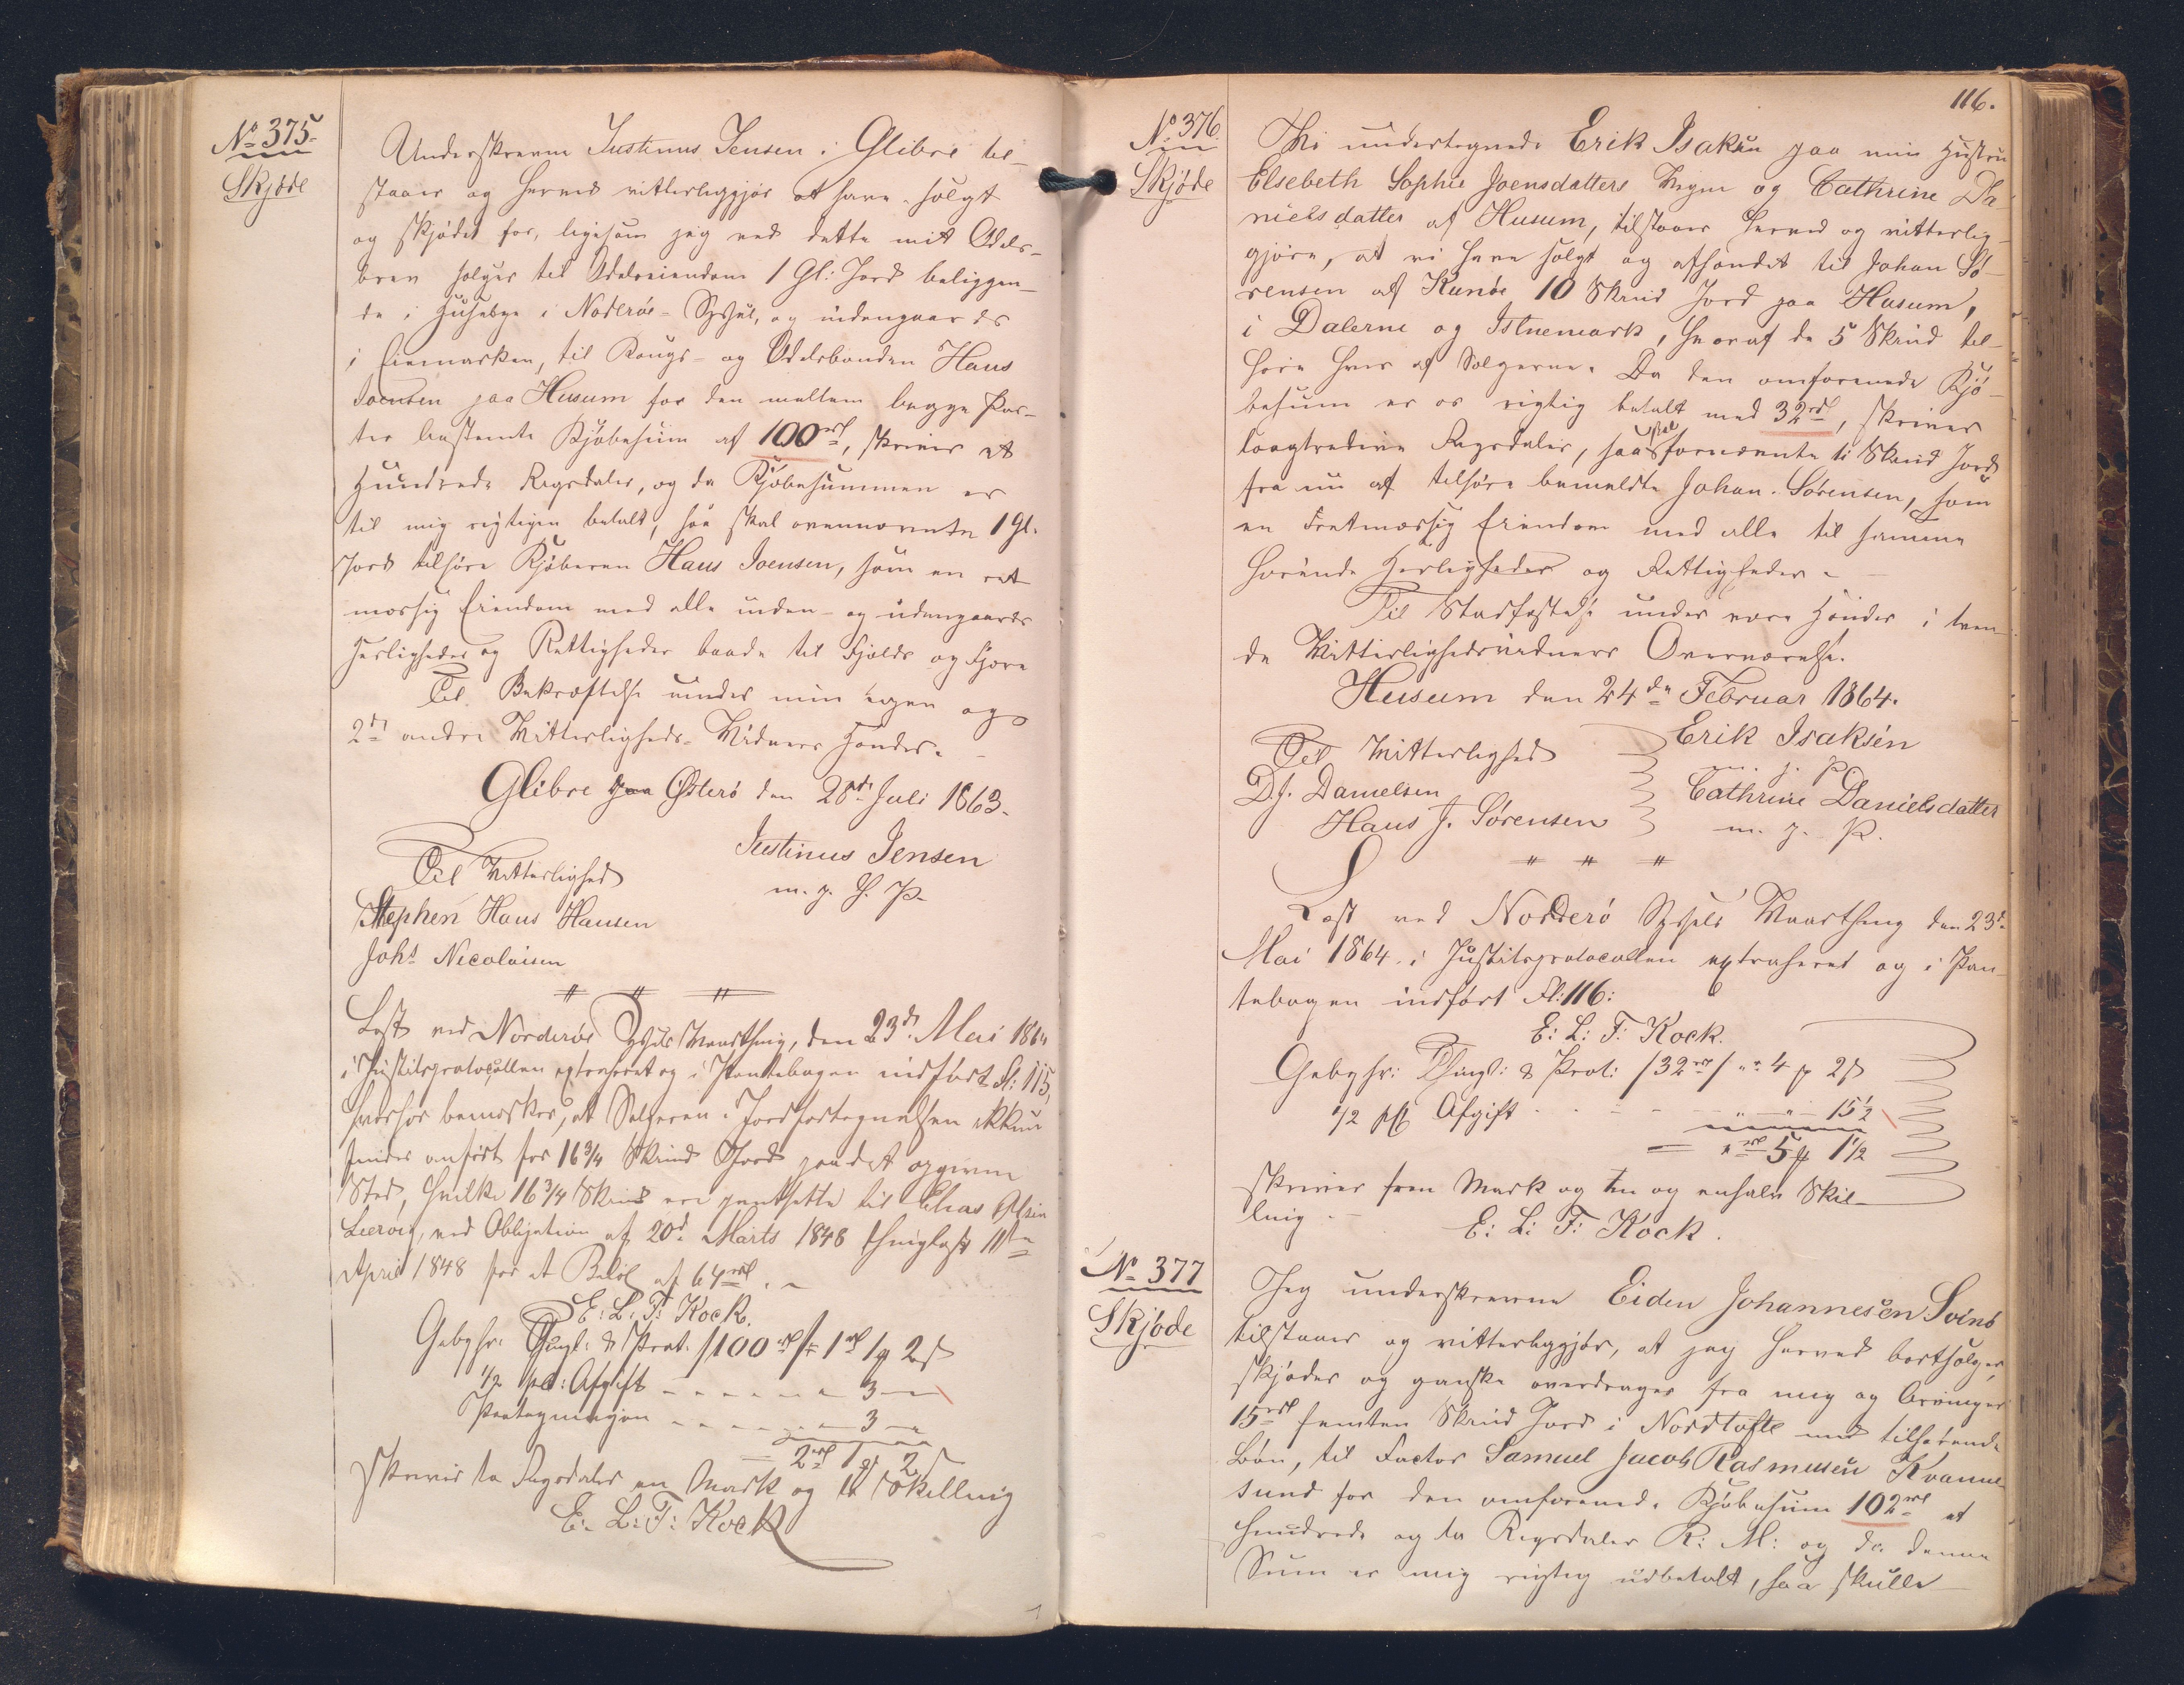 No 375.
Skjøde
Underskrevne Justinus Jensen i Glibre til-
staaer og herved vitterliggjør at have solgt
og skjødet for, ligesom jeg ved dette mit Odels-
brev sælger til Odelseiendom 1 Gl: Jord beliggen-
de i Husebye i Norderøe-Syssel, og udengaards
i Eiemarken, til Kongs- og Odelsbonden Hans
Joensen paa Husum for den mellem begge Par-
ter bestemte Kjøbesum af 100 rd, skriver et
Hundrede Rigsdaler, og da Kjøbesummen er
til mig rigtigen betalt, saa skal ovennævnte 1 Gl.
Jord tilhøre Kjøberen Hans Joensen, som en ret
mæssig Eiendom med alle inden- og udengaards
Herligheder og Rettigheder baade til Fjelds og Fjære
Til Bekræftelse under min egen og
2de andre Vitterligheds-Vidners Hænder.
Glibre paa Østerø den 28de Juli 1863.
Justinus Jensen
m. f. H. P.
Til Vitterlighed
Stephen Hans Hansen
Johs Nicolaisen
Læst ved Norderøe Syssels Vaarthing, den 23d Mai 1864
i Justitsprotocollen extraheret og i Pantebogen indført Fl: 115,
hvorhos bemærkes, at Sælgeren i Jordfortegnelsen ikkun
findes anført for 16 3/4 Skind Jord paa det opgivne
Sted, hvilke 16 3/4 Skind ere pantsatte til Elias
Leerøig, ved Obligation af 20d Marts 1848 thinglæst 11te
April 1848 for et Beløb af 64 rd.
E: L: F: Kock.
Gebyhr: Thingl: & Prot. /100 rd/ = 1 rd 1 ₰ 2 s
1/2 pCt: Afgift - - - - - 3 -
Paategningen - - - - - 3 -
= 2 rd 1 ₰ 2 s
skriver to Rigsdaler en Mark og to Skilling
E: L: F: Kock
116.
No 376
Skjøde
Vi undertegnede Erik Isaksen paa min Hustru
Elsebeth Sophie Joensdatters Vegne og Cathrine Da
nielsdatter af Husum, tilstaaer herved og vitterlig-
gjøre, at vi have solgt og afhændet til Johan Sø-
rensen af Kunøe 10 Skind Jord paa Husum,
i Dalerne og Istnemark, hvoraf de 5 Skind til-
høre hver af Sælgerne. Da den omforenede Kjø-
besum er os rigtig betalt med 32 rd, skriver
toogtredive Rigsdaler, saa skal fornævnte ti Skind Jord
fra nu af tilhøre bemeldte Johan Sørensen, som
en retmæssig Eiendom med alle til samme
hørende Herligheder og Rettigheder.
Til Stadfæstelse under vore Hænder i tven-
de Vitterlighedsvidners Overværelse.
Husum den 24de Februar 1864.
Erik Isaksen
m. f. P.
Cathrine Danielsdatter
m. f. P.
Til Vitterlighed
D. J. Danielsen
Hans J. Sørensen
Læst ved Norderø Syssels Vaarthing den 23d
Mai 1864 i Justitsprotocollen extraheret og i Pan-
tebogen indført Fl: 116:
E: L: F: Kock.
Gebyhr: Thingl: & Prot: /32 rd/ " 4 ₰ 2 s
1/2 pCt Afgift - - - " - " - 15 1/2
= " rd 5 ₰ 1 1/2
skriver fem Mark og en og enhalv Skil-
ling.
E: L: F: Kock.
No 377
Skjøde
Jeg underskrevne Eiden Johannesen Svinø
tilstaaer og vitterliggjør, at jeg herved bortsælger,
skjøder og ganske overdrager fra mig og Arvinger
15 rd femten Skind Jord i Nordtofte med tilhørende
Løn, til Factor Samuel Jacob Rasmussen Kvanne
sund for den omforenede Kjøbesum 102 rd et
hundrede og to Rigsdaler R: M: og da denne
Sum er mig rigtig udbetalt, saa skulle